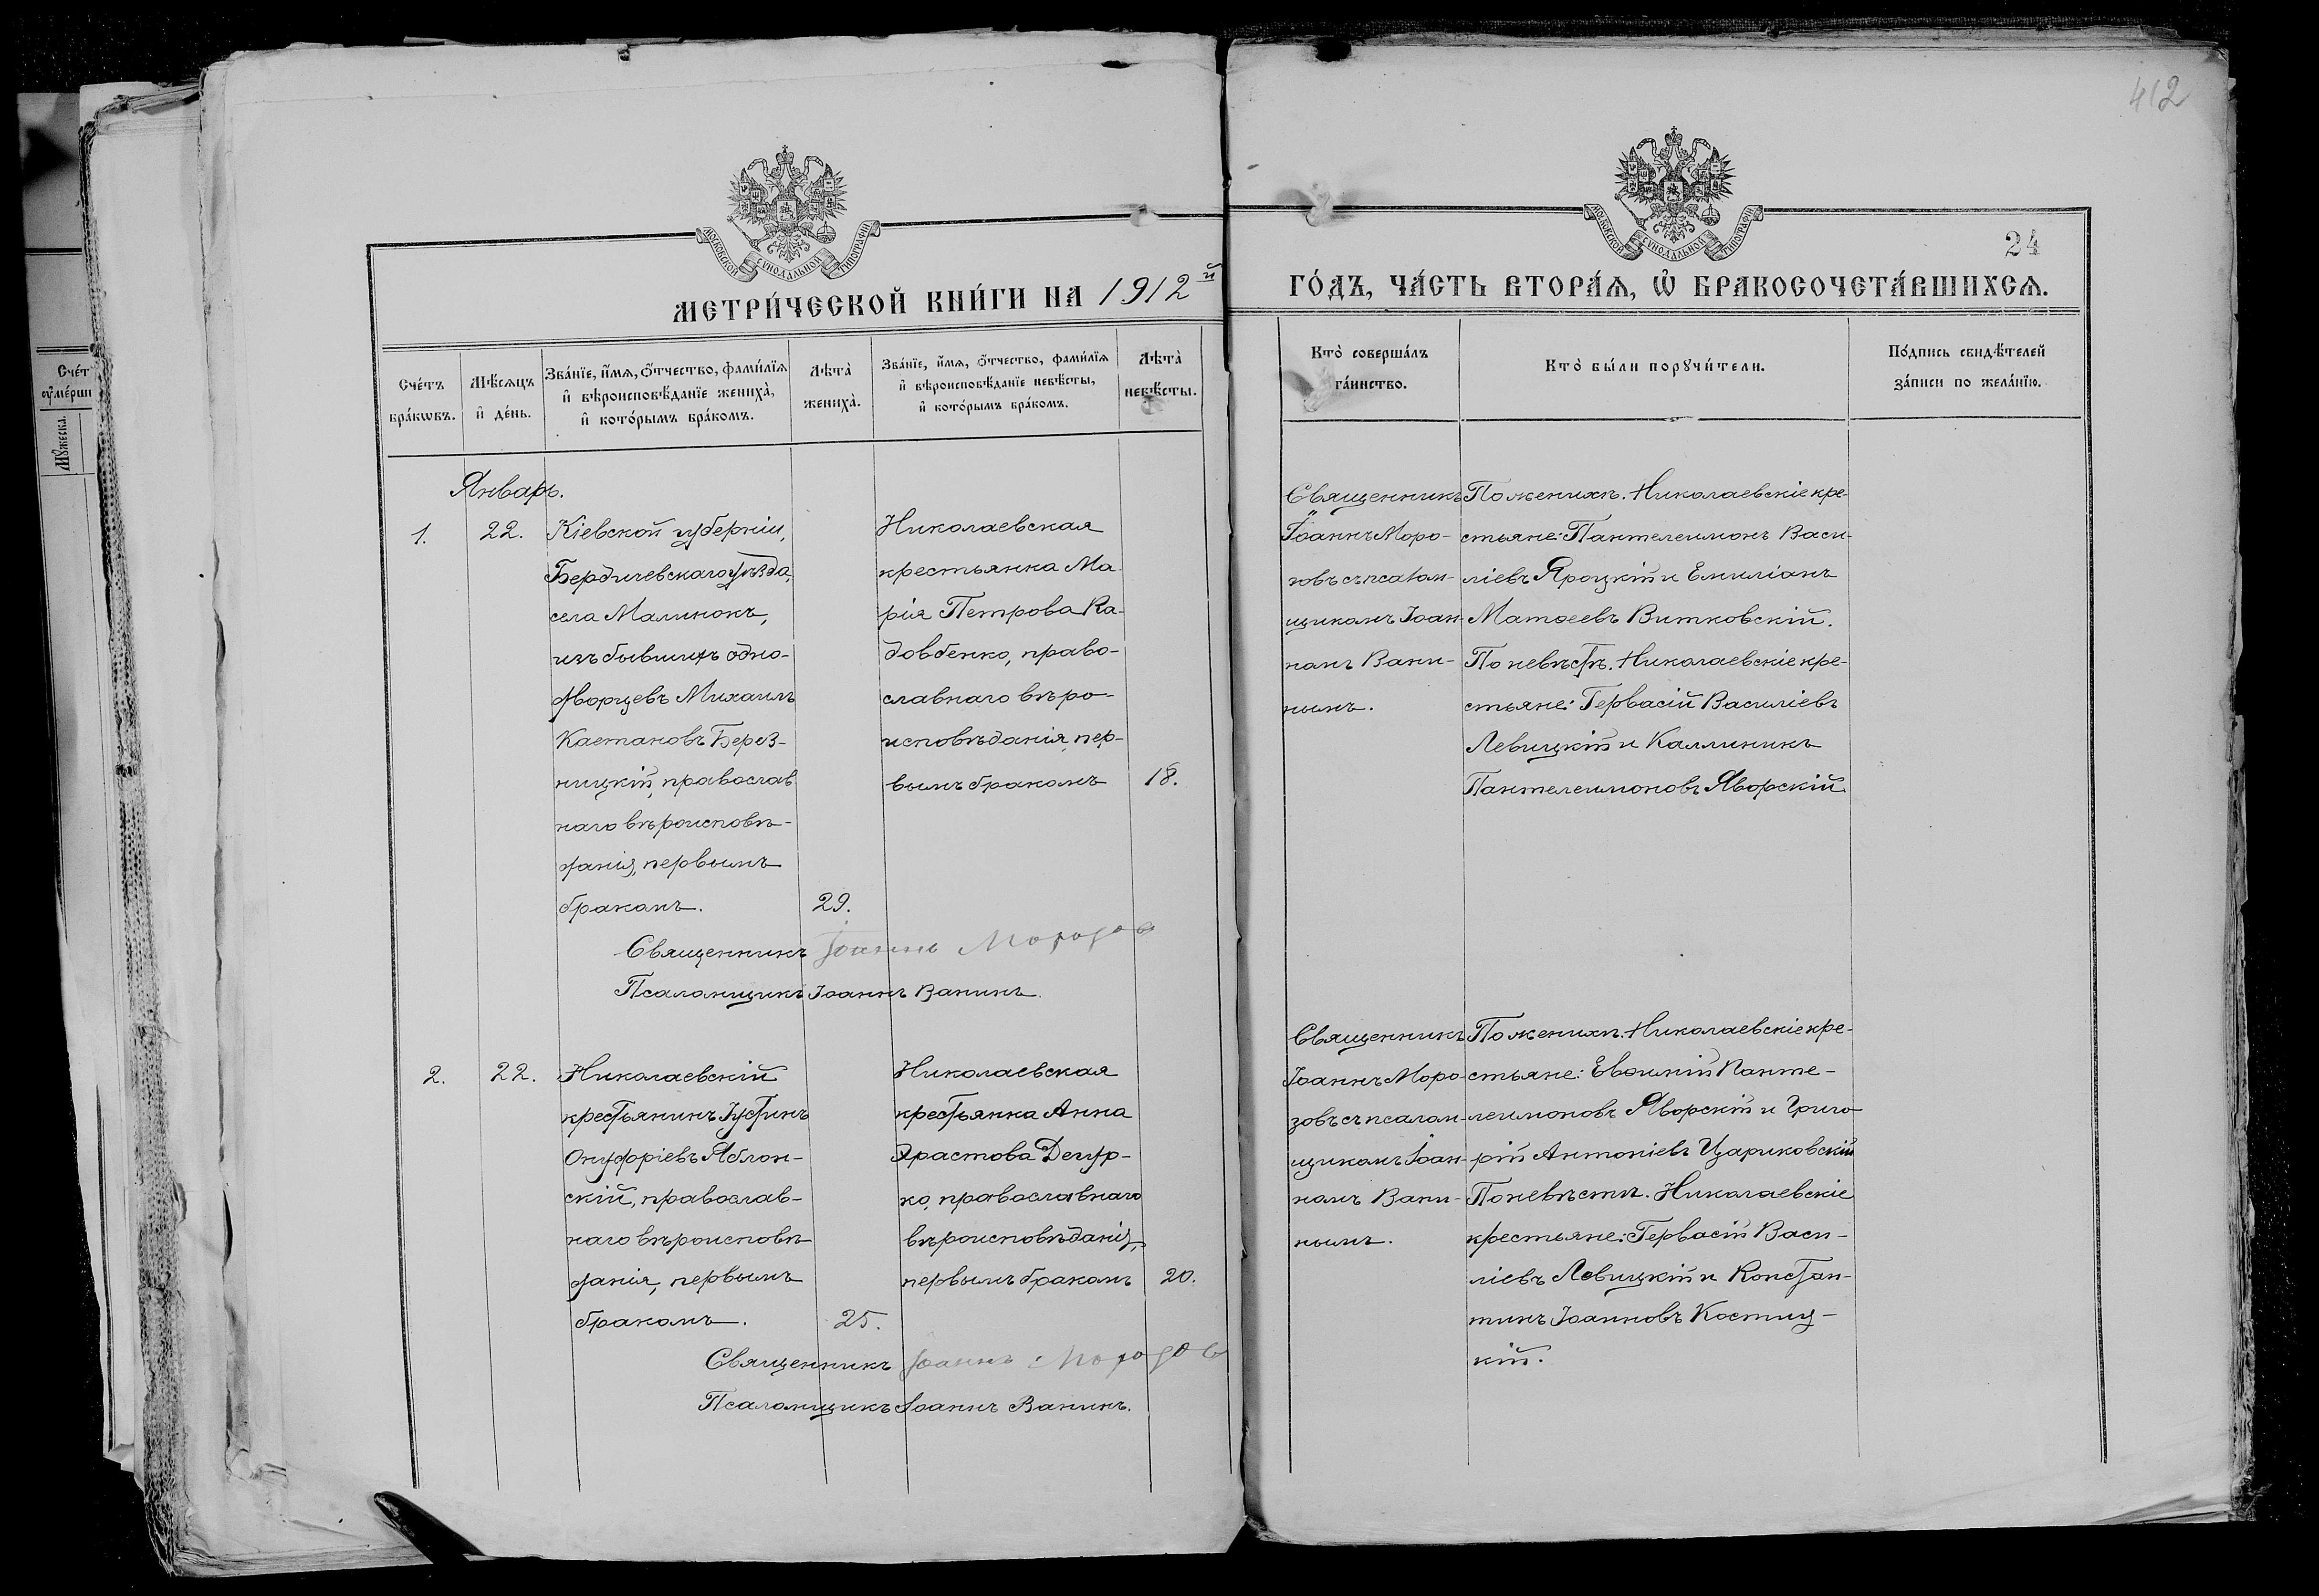 412
МОСКОВСКОЙ СѴНОДАЛЬНОЙ ТИПОГРАФІИ
МОСКОВСКОЙ СѴНОДАЛЬНОЙ ТИПОГРАФІИ
24
МЕТРИ́ЧЕСКОЙ КНИ́ГИ НА 1912й
ГО́ДЪ, ЧА́СТЬ ВТОРА́Ѧ, Ѡ҆ БРАКОСОЧЕТА́ВШИХСѦ.
Сче́тъ
бра́кѡвъ.
Мѣ́сѧцъ
и҆ де́нь.
Зва́нїе, и҆́мѧ, ѻ҆́тчество, фами́лїѧ
и҆ вѣроисповѣ́данїе жениха̀,
и҆ кото́рымъ бра́комъ.
Лѣ́та̀
жениха̀.
Зва́нїе, и҆́мѧ, ѻ҆́тчество, фами́лїѧ
и҆ вѣроисповѣ́данїе невѣ́сты,
и҆ кото́рымъ бра́комъ.
Лѣ́та̀
невѣ́сты.
Кто̀ соверша́лъ
та́инство.
Кто̀ бы́ли порꙋчи́тели.
По́дпись свидѣ́телей
за́писи по жела́нїю.
Январь.
1.
22.
Кіевской губерніи,
Бердичевскаго уѣзда,
села Малинокъ,
изъ бывшихъ одно-
дворцевъ Михаилъ
Каетановъ Берез-
ницкій, православ
наго вѣроисповѣ-
данія, первымъ
бракомъ.
29.
Николаевская
крестьянка Ма-
рія Петрова Ка-
довбенко, право-
славнаго вѣро-
исповѣданія, пер-
вымъ бракомъ
18.
Священникъ
Іоаннъ Моро-
зовъ съ псалом-
щикомъ Іоан-
номъ Вани-
нымъ.
По женихѣ. Николаевскіе кре-
стьяне: Пантелеимонъ Васи-
ліевъ Яроцкій и Емиліанъ
Матѳеевъ Витковскій.
По невѣстѣ. Николаевскіе кре-
стьяне: Гервасій Василіевъ
Левицкій и Каллиникъ
Пантелеимоновъ Яворскій
Священникъ Іоаннъ Морозов
Псаломщикъ Іоаннъ Ванинъ.
2.
22.
Николаевскій
крестьянинъ Іустинъ
Онуфріевъ Яблон-
скій, православ-
наго вѣроисповѣ
данія, первымъ
бракомъ.
25.
Николаевская
крестьянка Анна
Эрастова Дегур-
ко, православнаго
вѣроисповѣданія,
первымъ бракомъ
20.
Священникъ
Іоаннъ Моро-
зовъ съ псалом-
щикомъ Іоан-
номъ Вани-
нымъ.
По женихѣ. Николаевскіе кре-
стьяне: Евѳимій Панте-
леимоновъ Яворскій и Григо
рій Антоніевъ Цариковскій
По невѣстѣ. Николаевскіе
крестьяне: Гервасій Васи-
ліевъ Левицкій и Констан-
тинъ Іоанновъ Костиц-
кій.
Священникъ Іоаннъ Морозов
Псаломщикъ Іоаннъ Ванинъ.
Сче́т
ᲂу҆ме́рши
Мꙋ́жеска